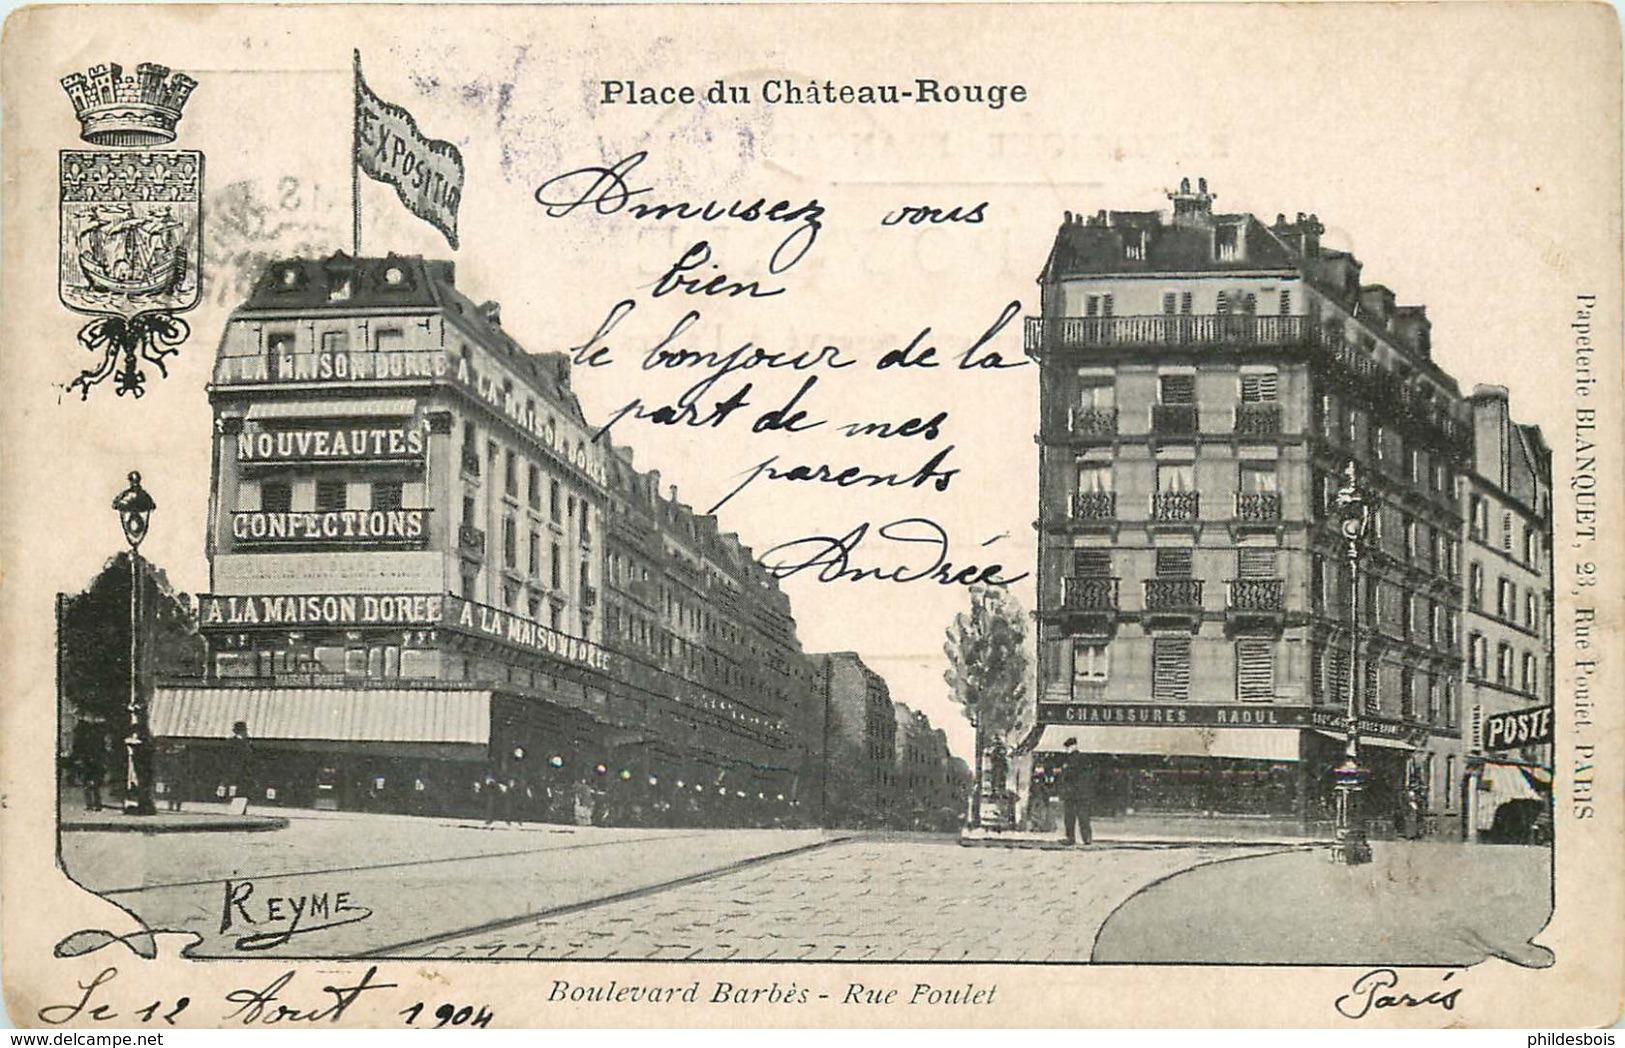 Place du Château-Rouge
EXPOSITION
Amusez vous
bien
le bonjour de la
part de mes
parents
Andrée
LA MAISON DOREE
A LA MAISON DOREE
NOUVEAUTES
CONFECTIONS
A LA MAISON DOREE
A LA MAISON DOREE
MAISON DOREE
CHAUSSURES RAOUL
POSTE
Papeterie BLANQUET, 23, Rue Poulet, PARIS
REYME
Boulevard Barbès - Rue Poulet
Le 12 Aout 1904
Paris
phildesbois